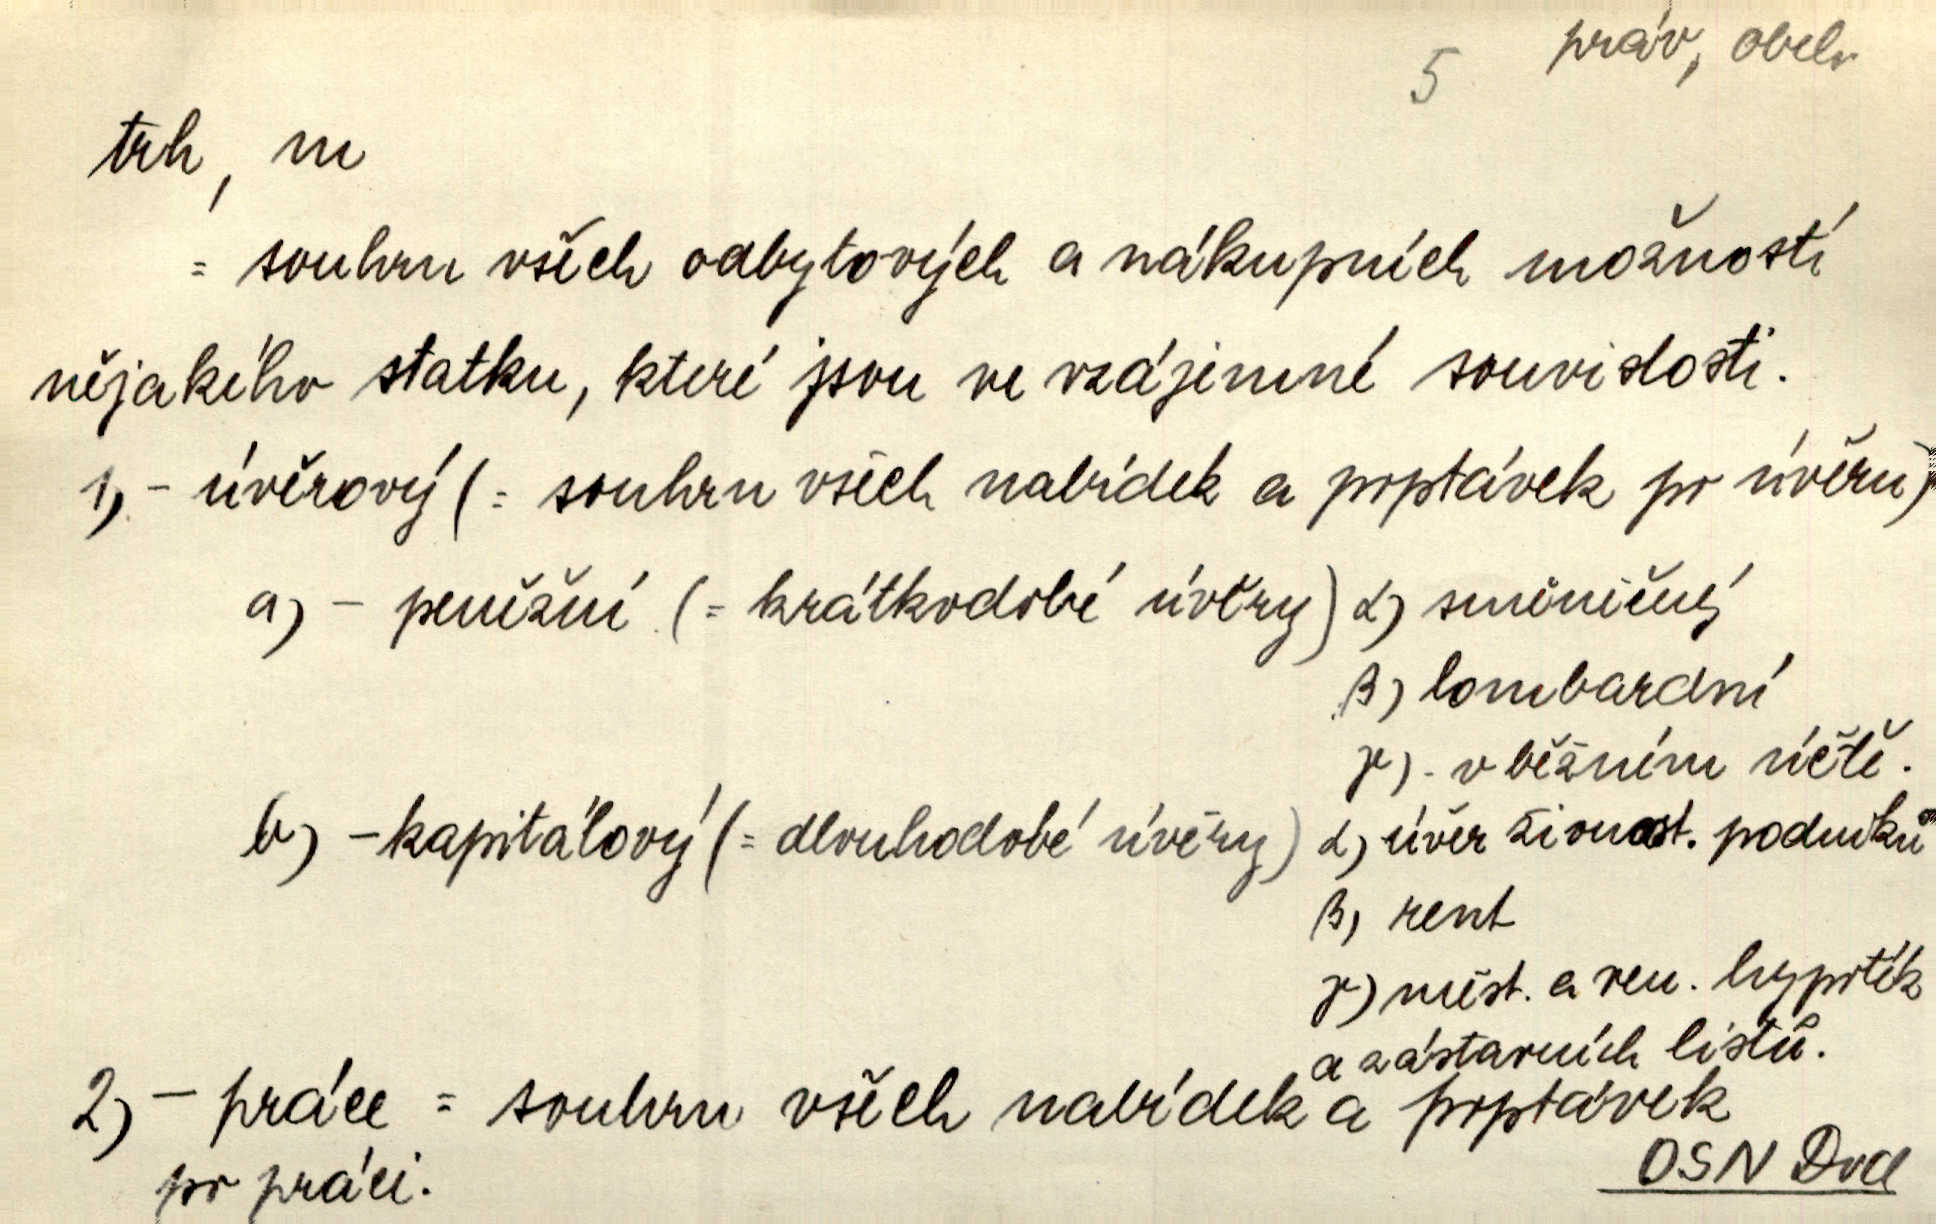 5 práv, obch
trh, m
= souhrn všech odbytových a nákupních možností
nějakého statku, které jsou ve vzájemné souvislosti.
1) - úvěrový (= souhrn všech nabídek a poptávek po úvěru)
a) - peněžní (= krátkodobé úvěry) α) směničný
β) lombardní
γ) - v běžném účtě.
b) - kapitálový (= dlouhodobé úvěry) α) úvěr živnost. podniků
β) rent
γ) měst. a ven. hypoték
a zástavních listů.
2) - práce = souhrn všech nabídek a poptávek
po práci.
OSN Dvd